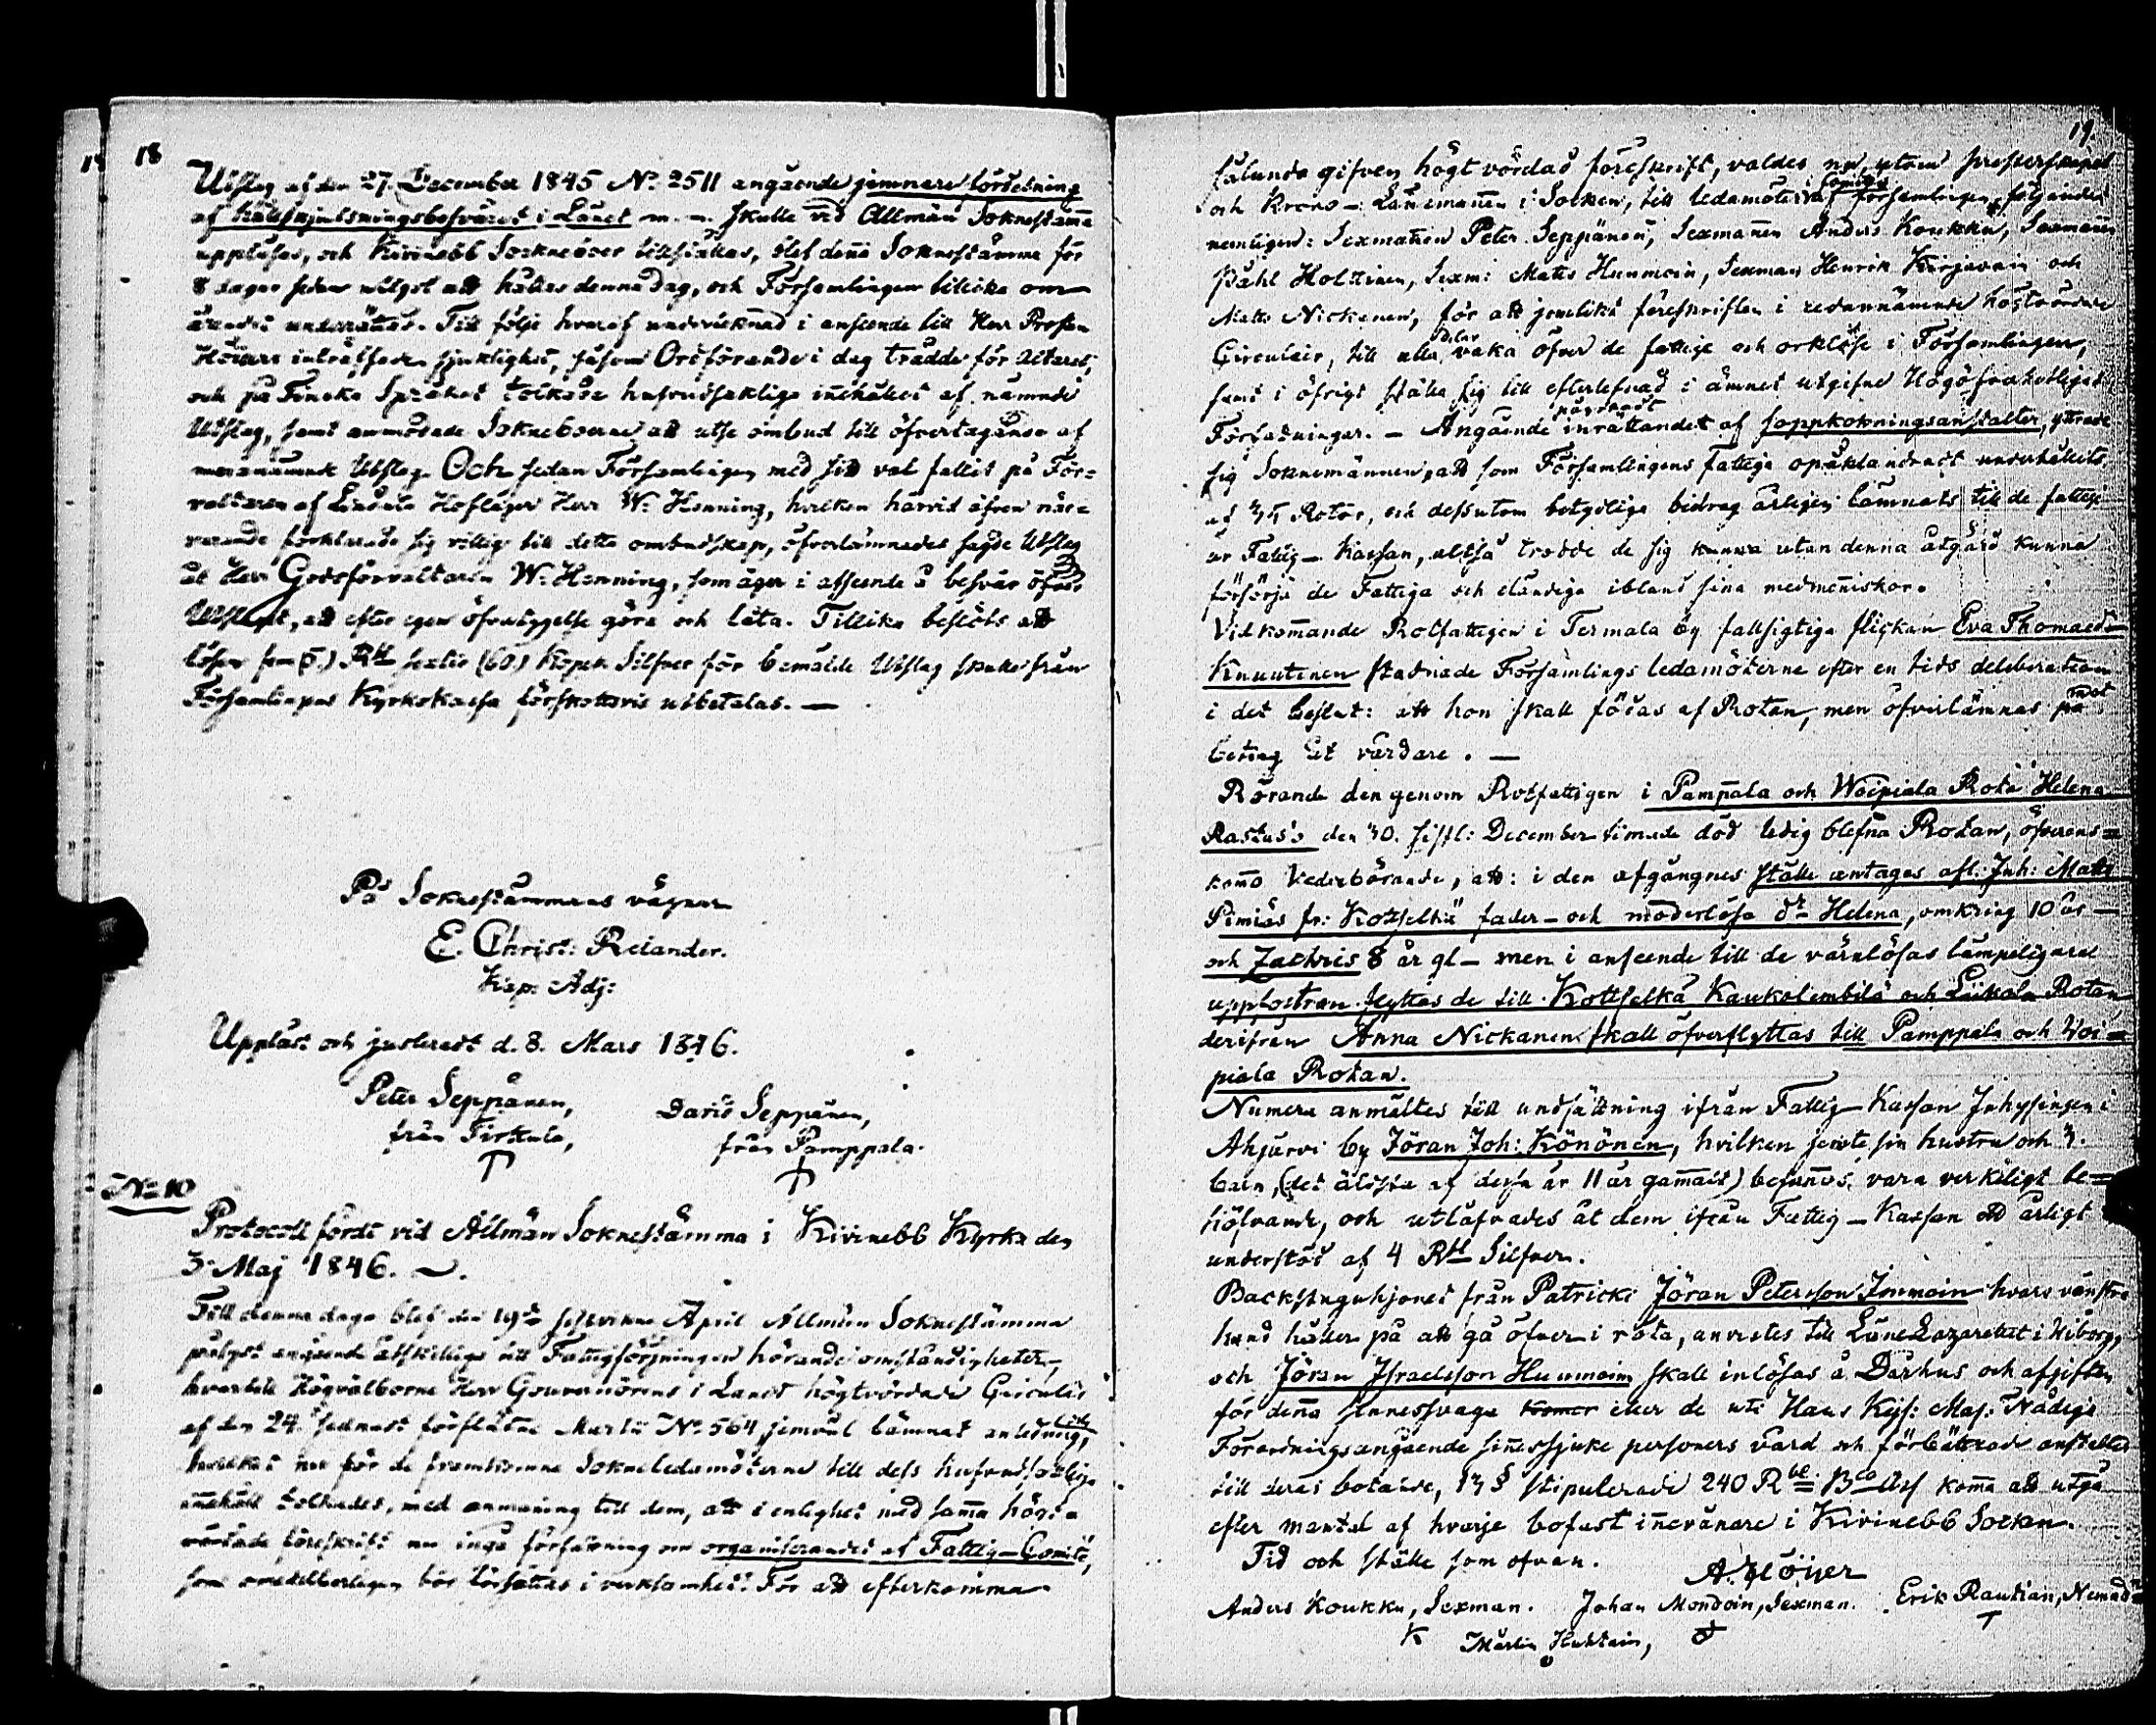 18
Utslag af den 27. December 1845 No. 2511 angående jemnare fördelning
af hållskjutsningsbesväret i Länet m. m. skulle vid Allmän Soknestämma
uppläsas, och Kivinebb Sockneboer tillfrågas, blef denna Soknestämma för
8 dagar sedan utlyst att hållas denna dag, och Församlingen tillika om
ärendet underrättad. Till följe hvaraf undertecknad i anseende till Herr Prosten
Höijers inträffade sjuklighet, såsom Ordförande i dag trädde för altaret,
och på Finska Språket tolkade hufvudsakliga innehållet af nämnde
Utslag, samt anmodade Sokneboerne att utse ombud till öfvertagande af
mernämnde Utslag. Och sedan Församlingen med sitt val fallit på För-
valtaren af Lindula Hofläger Herr W. Henning, hvilken härvid äfven när-
varande förklarade sig villig till detta ombudskap, öfverlämnades sagde Utslag
åt Herr Godsförvaltaren W. Henning, som äger i afseende å besvär öfver
Utslaget, att efter egen öfvertygelse göra och låta. Tillika beslöts att
lösen fem (5.) Rbl sextio (60.) Kopek Silfver för bemälde Utslag skulle från
Församlingens Kyrkokassa förskottsvis utbetalas. —
På Soknestämmans vägnar
E. Christ: Relander.
Kap: Adj:
Uppläst och justeradt d. 8. Mars 1846.
Peter Seppänen, David Seppänen,
från Tirttula, från Pamppala.
No 10
Protocoll fördt vid Allmän Soknestämma i Kivinebb Kyrka den
3 Maj 1846. —.
Till denna dag blef den 19de sistvikne April Allmän Soknestämma
pålyst angående åtskilliga till Fattigförsörjningen hörande omständigheter,
hvartill Högvälborne Herr Gouvernörens i Länet högtvördade Circulär
af den 24. sednast förflutne Martii No 564 jemväl lämnat anledning,
hvilket nu för de framkomne Sokneledamöterne till dess hufvudsakliga
innehåll tolkades, med anmaning till dem, att i enlighet med samma högt-
vördade föreskrift nu ingå författning om organiserandet af Fattig-Comité,
som omedelbarligen bör försättas i verksamhet. För att efterkomma
19
sålunda gifven högt vördad föreskrift, valdes nu utom presterskapet
och Krono-Länsmannen i Socken, till ledamöter af Församlingen följande
nemligen: Sexmannen Peter Seppänen, Sexmannen Anders Koukku, Sexmannen
Påhl Holttinen, Sexm: Matts Hunmoin, Sexman Henrik Kirjavain och
Matts Nickanen, för att jemlikt föreskriften i redannämnde högtvördade
Circulair, till alla delar vaka öfver de fattige och orklöse i Församlingen,
samt i öfrigt ställa sig till efterlefnad i ämnet utgifne Högöfverhetliga
Författningar. — Angående inrättandet af soppkokningsanstalter, yttrade
sig Soknemännen, att som Församlingens Fattiga opåklandradt underhållits
af Rotor, och dessutom betydlige bidrag årligen lämnats till de fattige
ur Fattig-Kassan, altså trodde de sig kunna utan denna åtgärd kunna
försörja de Fattiga och eländiga ibland sina medmenniskor.
Vidkommande Rotfattigen i Termala by fallsigtiga flickan Eva Thomaed:r
Knuutinen stadnade Församlings ledamöterne efter en tids deliberation
i det beslut: att hon skall födas af Rotan, men öfverlämnas mot
beting åt vårdare. —
Rörande den genom Rotfattigen i Pampala och Woipiala Rota Helena
Rastas's den 30. sistl: December timade död ledig blefna Rotan, öfverens-
kommo Vederbörande, att: i den afgångnes ställe antages afl: Inh: Matts
Pimiäs fr: Kottselkä fader- och moderlösa dr Helena, omkring 10 år —
och Zachris 8 år gl — men i anseende till de värnlösas lämpeligare
uppfostran flyttas de till Kottselkä Kaukolembilä och Läikälä Rotan
derifrån Anna Nickanen skall öfverflyttas till Pamppala och Woi-
piala Rotan.
Numera anmältes till undsättning ifrån Fattig-Kassan Inhysingen i
Ahjärvi by Jöran Joh: Könönen, hvilken jemte sin hustru och 3.
barn, (det äldsta af dessa är 11 år gammalt) befunnos vara verkeligt be-
höfvande, och utlåfvades åt dem ifrån Fattig-Kassan ett årligt
understöd af 4 Rbl Silfver.
Backstuguhjonet från Patricki Jöran Petersson Inmoin hvars vänstra
hand håller på att gå öfver i röta, anvistes till Läns Lazarettet i Wiborg,
och Jöran Israelsson Hunmoin skall inlösas å Dårhus och afgiften
för denna sinnessvaga eller de uti Hans Kejs: Maj: Nådiga
Förordning angående sinnessjuke personers vård och förbättrade anstalter
till deras botande, 13 § stipulerade 240 Rbl Bco Ass komma att utgå
efter mantal af hvarje bofast innevånare i Kivinebb Socken.
Tid och ställe som ofvan.
A. Höijer
Anders Koukku, Sexman. Johan Mondoin, Sexman. Erik Rautian, Nemnd:n
Mårtin Huhtain,